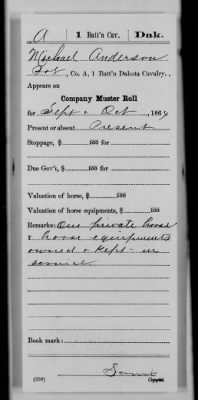 A | 1 Batt'n Cav. | Dak.
Michael Anderson
Co. A, 1 Batt'n Dakota Cavalry.
Appears on
Company Muster Roll
for Sept & Oct, 1864
Present or absent Present
Stoppage, $ 100 for
Due Gov't, $ 100 for
Valuation of horse, $ 100
Valuation of horse equipments, $ 100
Remarks: One private horse
& horse equipments
owned & kept in
service
Book mark:
(358) Copyist.